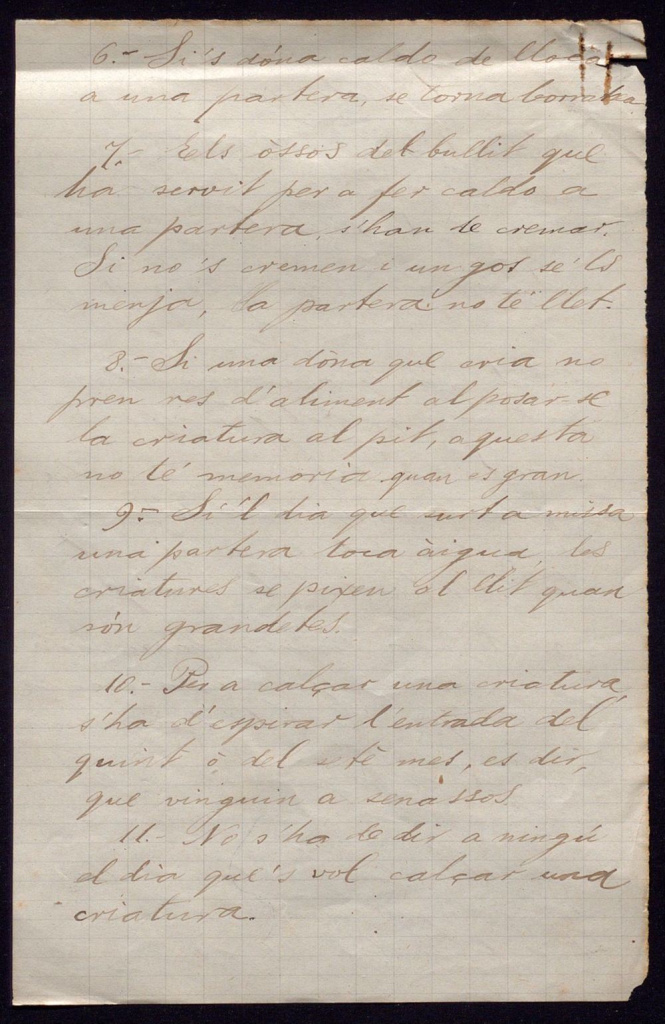 6.- Si's dóna caldo de lloca
a una partera, se torna borratxa.
7.- Els òssos del bullit que
ha servit per a fer caldo a
una partera, s'han de cremar.
Si no's cremen i un gos se'ls
menja, la partera no té llet.
8.- Si una dòna que cria no
pren res d'aliment al posar-se
la criatura al pit, aquesta
no té memoria quan és gran.
9.- Si'l dia que surt a missa
una partera toca àigua, les
criatures se pixen al llit quan
són grandetes.
10.- Per a calçar una criatura,
s'ha d'esperar l'entrada del
quint ò del setè mes, es dir,
que vinguin a senassos.
11.- No s'ha de dir a ningú
el dia que's vol calçar una
criatura.